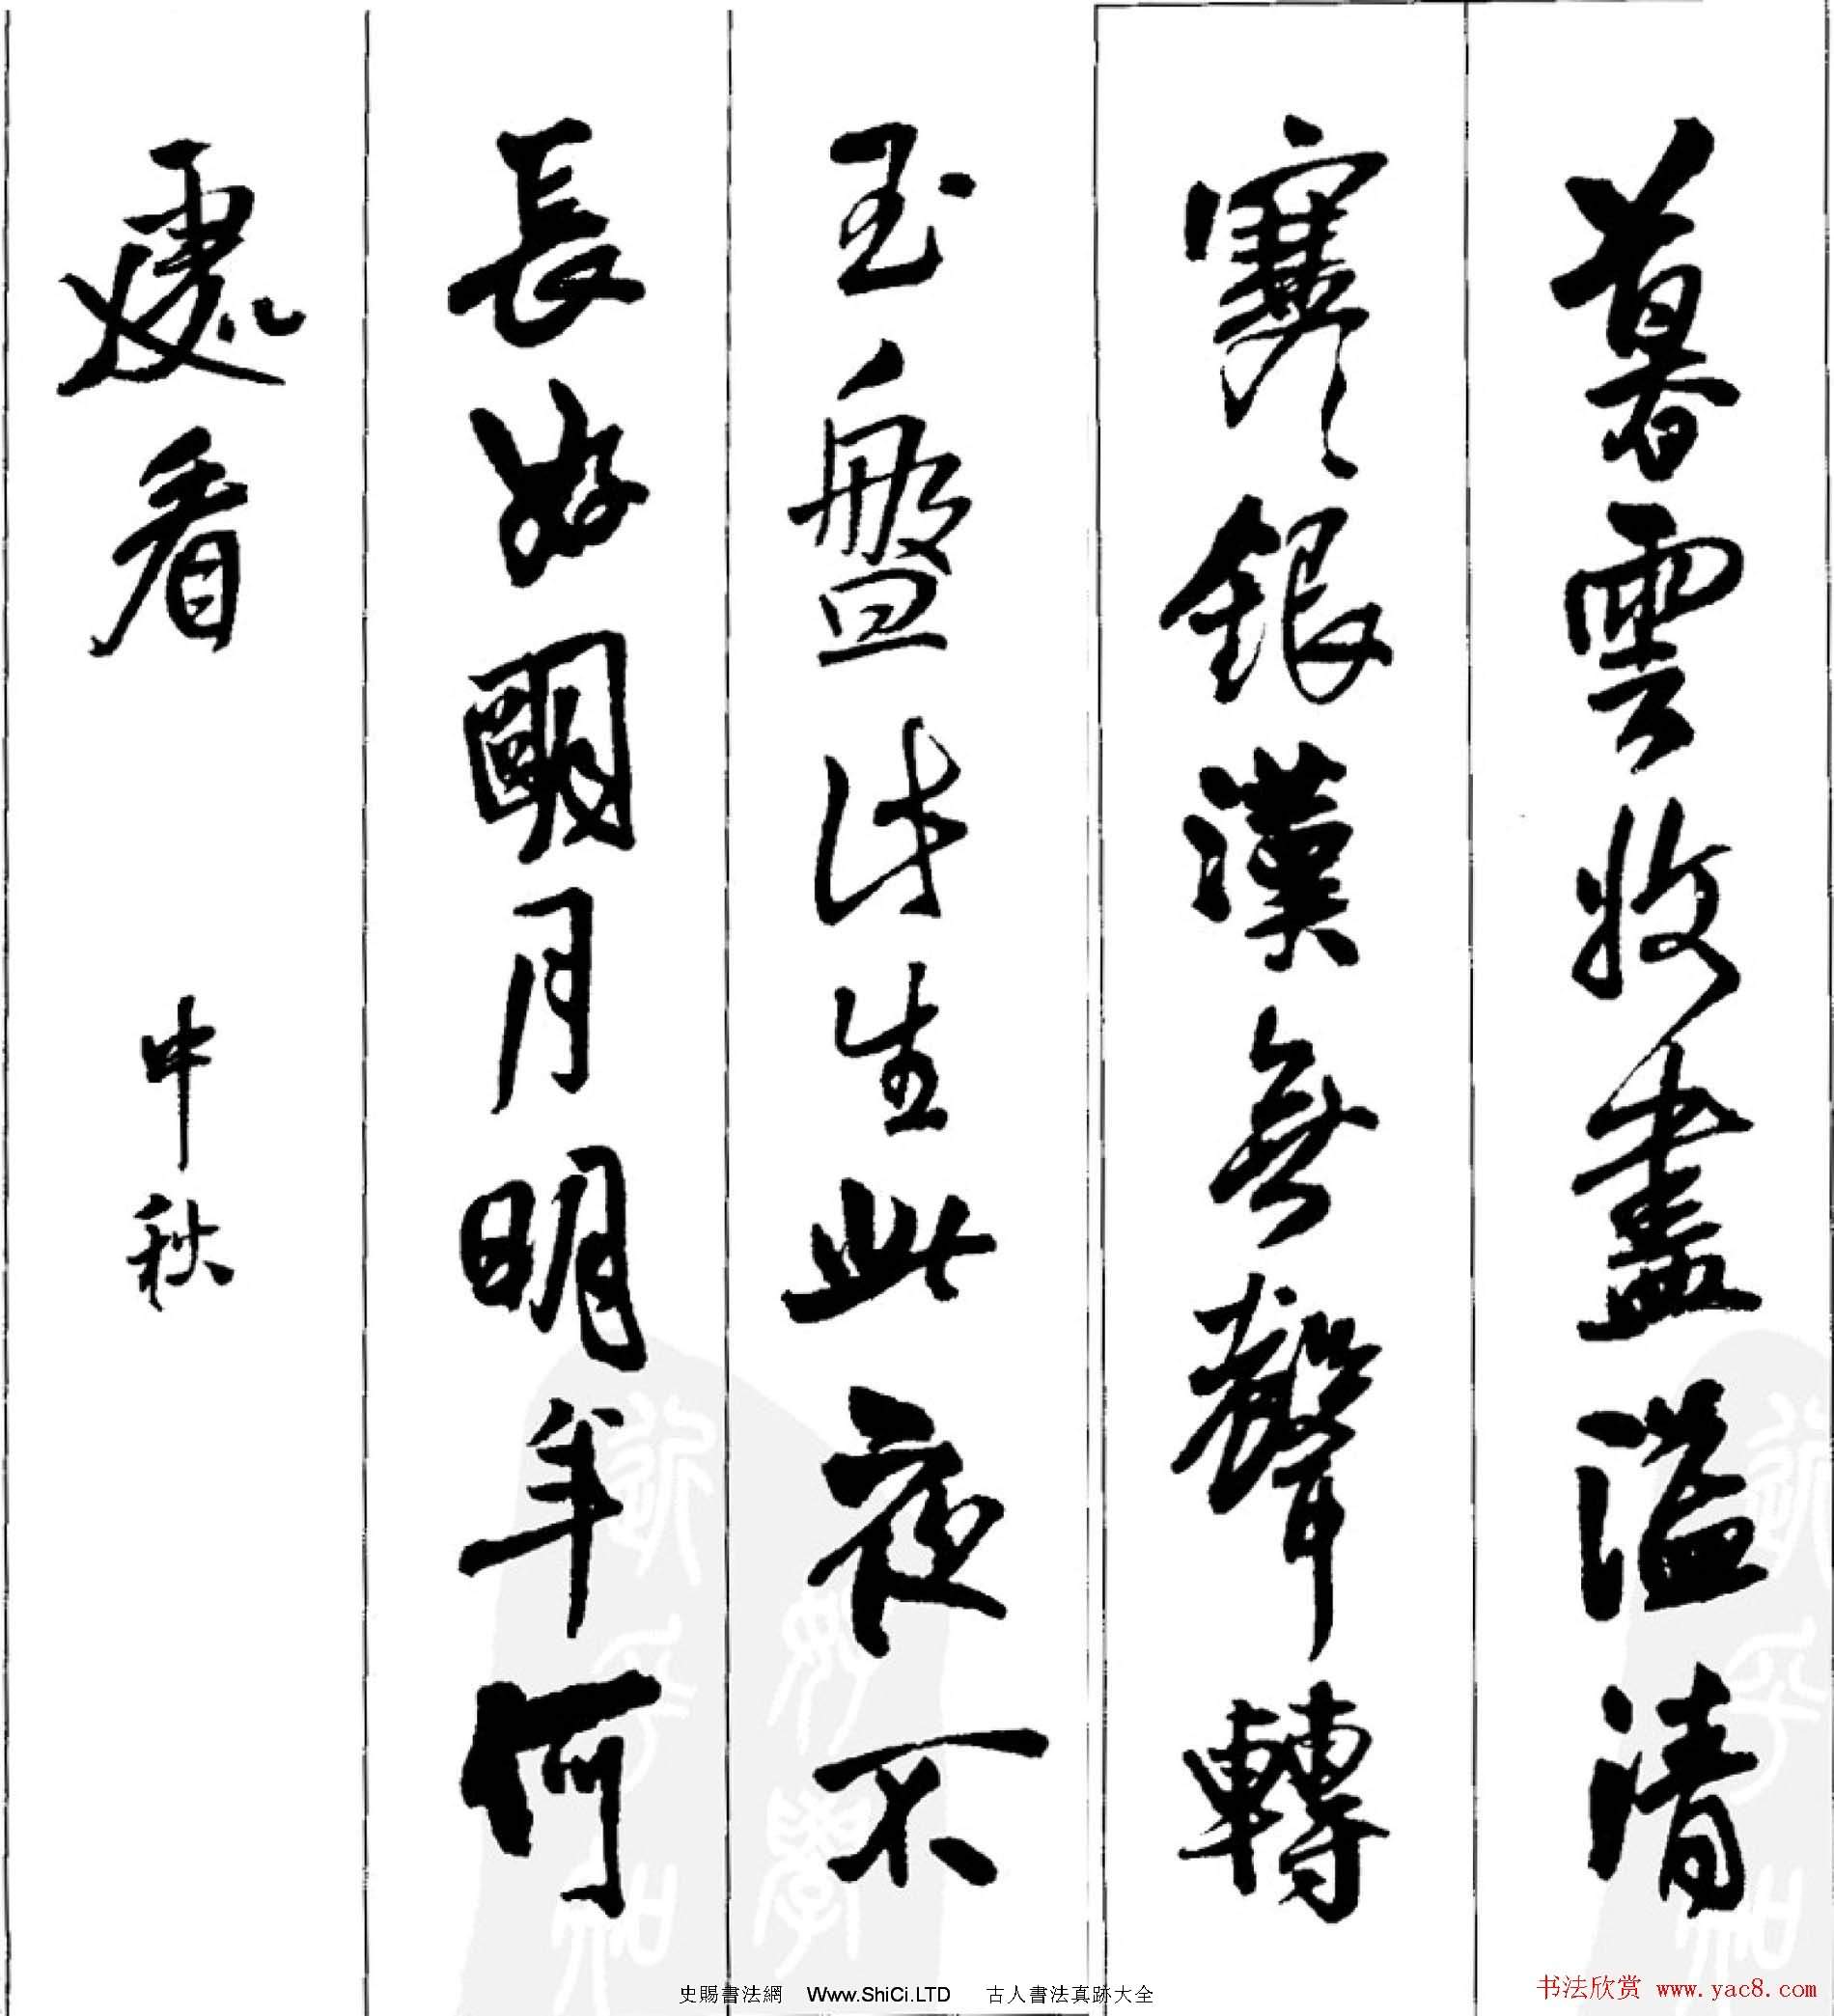 暮雲收盡溢清
寒銀漢無聲轉
玉盤此生此夜不
長好朙月明年何
處看 中秋
史賜書法網 Www.ShiCi.LTD 古人書法真跡大全
书法欣赏 www.yac8.com